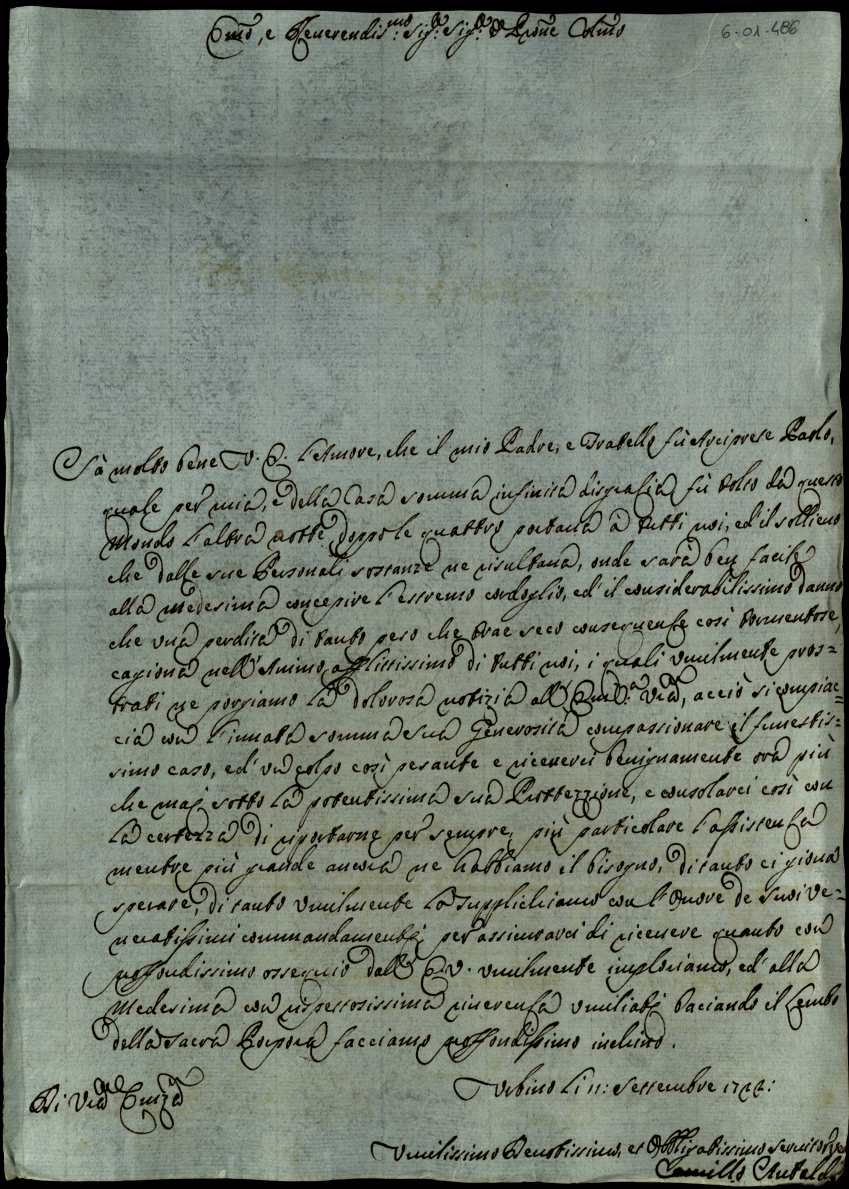 6-01-486
Em̃o, e Reverendis:mo Sig:r Sig:r e Pr̃one Colmo
Sà molto bene V. E. l'Amore, che il mio Padre, e Fratello fù Arciprete Paolo,
quale per mia, e della Casa somma infinita disgrazia fù tolto da questo
Mondo l'altra notte doppo le quattro portava à tutti noi, ed il sollievo
che dalle sue Personali sostanze ne risultava, onde sarà ben facile
alla medesima concepire l'estremo cordoglio, ed' il considerabilissimo danno
che una perdita di tanto peso che trae seco conseguenze così tormentose,
cagiona nell'Animo afflittissimo di tutti noi, i quali umilmente pros=
trati ne porgiamo la dolorosa notizia all' Em:a Vra, acciò si compiac=
cia con l'innata somma sua Generosità compassionare il funestis=
simo caso, ed' un colpo così pesante e riceverci benignamente ora più
che mai sotto la potentissima sua Prottezzione, e consolarci così con
la certezza di riportarne per sempre più particolare l'assistenza
mentre più grande ancora ne habbiamo il bisogno, di tanto ci giova
sperare, di tanto umilmente la supplichiamo con l'Onore de suoi ve=
neratissimi commandamenti per assicurarci di ricevere quanto con
profondissimo ossequio dall' E. V. umilmente imploriamo, ed' alla
Medesima con rispettosissima riverenza umiliati baciando il Lembo
della Sacra Porpora facciamo profondissimo inchino.
Di Vra Emza
Urbino li 11: Settembre 1744:
Umilissimo Devotissimo, et Obbligatissimo Servitore
Camillo Antaldi